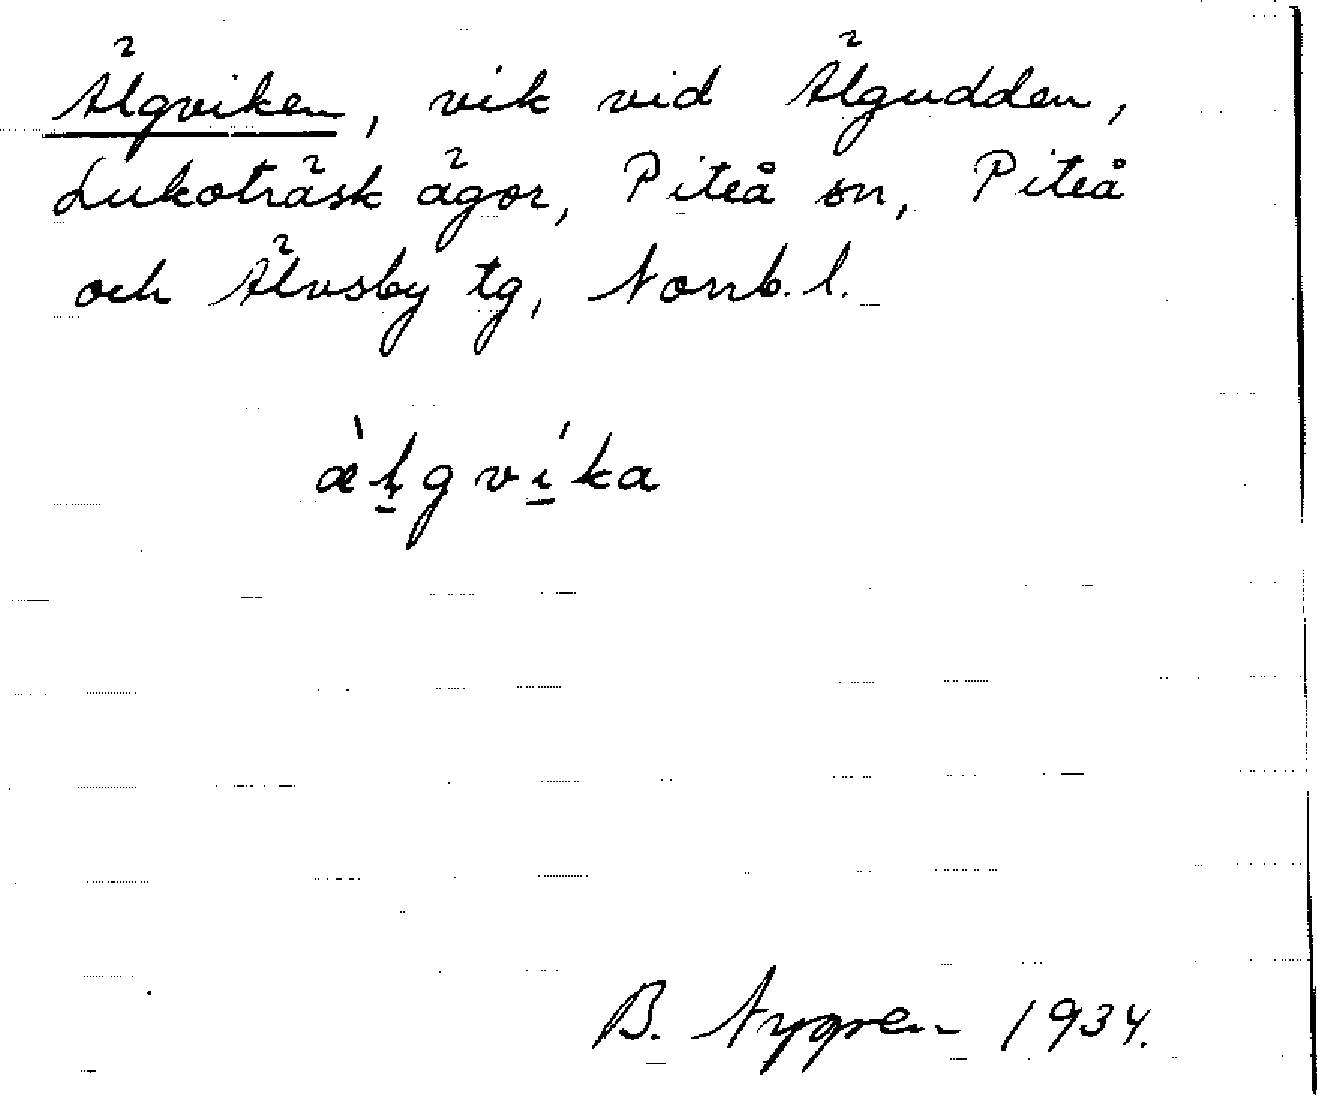 Älgviken, vik vid Älgudden,
Lukoträsk ägor, Piteå sn, Piteå
och Älvsby tg, Norrb. l.
æ̀ḷgví̱ka
B. Nygren 1934.